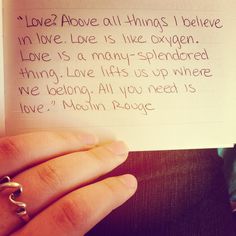 "Love? Above all things I believe
in love. Love is like oxygen.
Love is a many-splendored
thing. Love lifts us up where
we belong. All you need is
love." Moulin Rouge